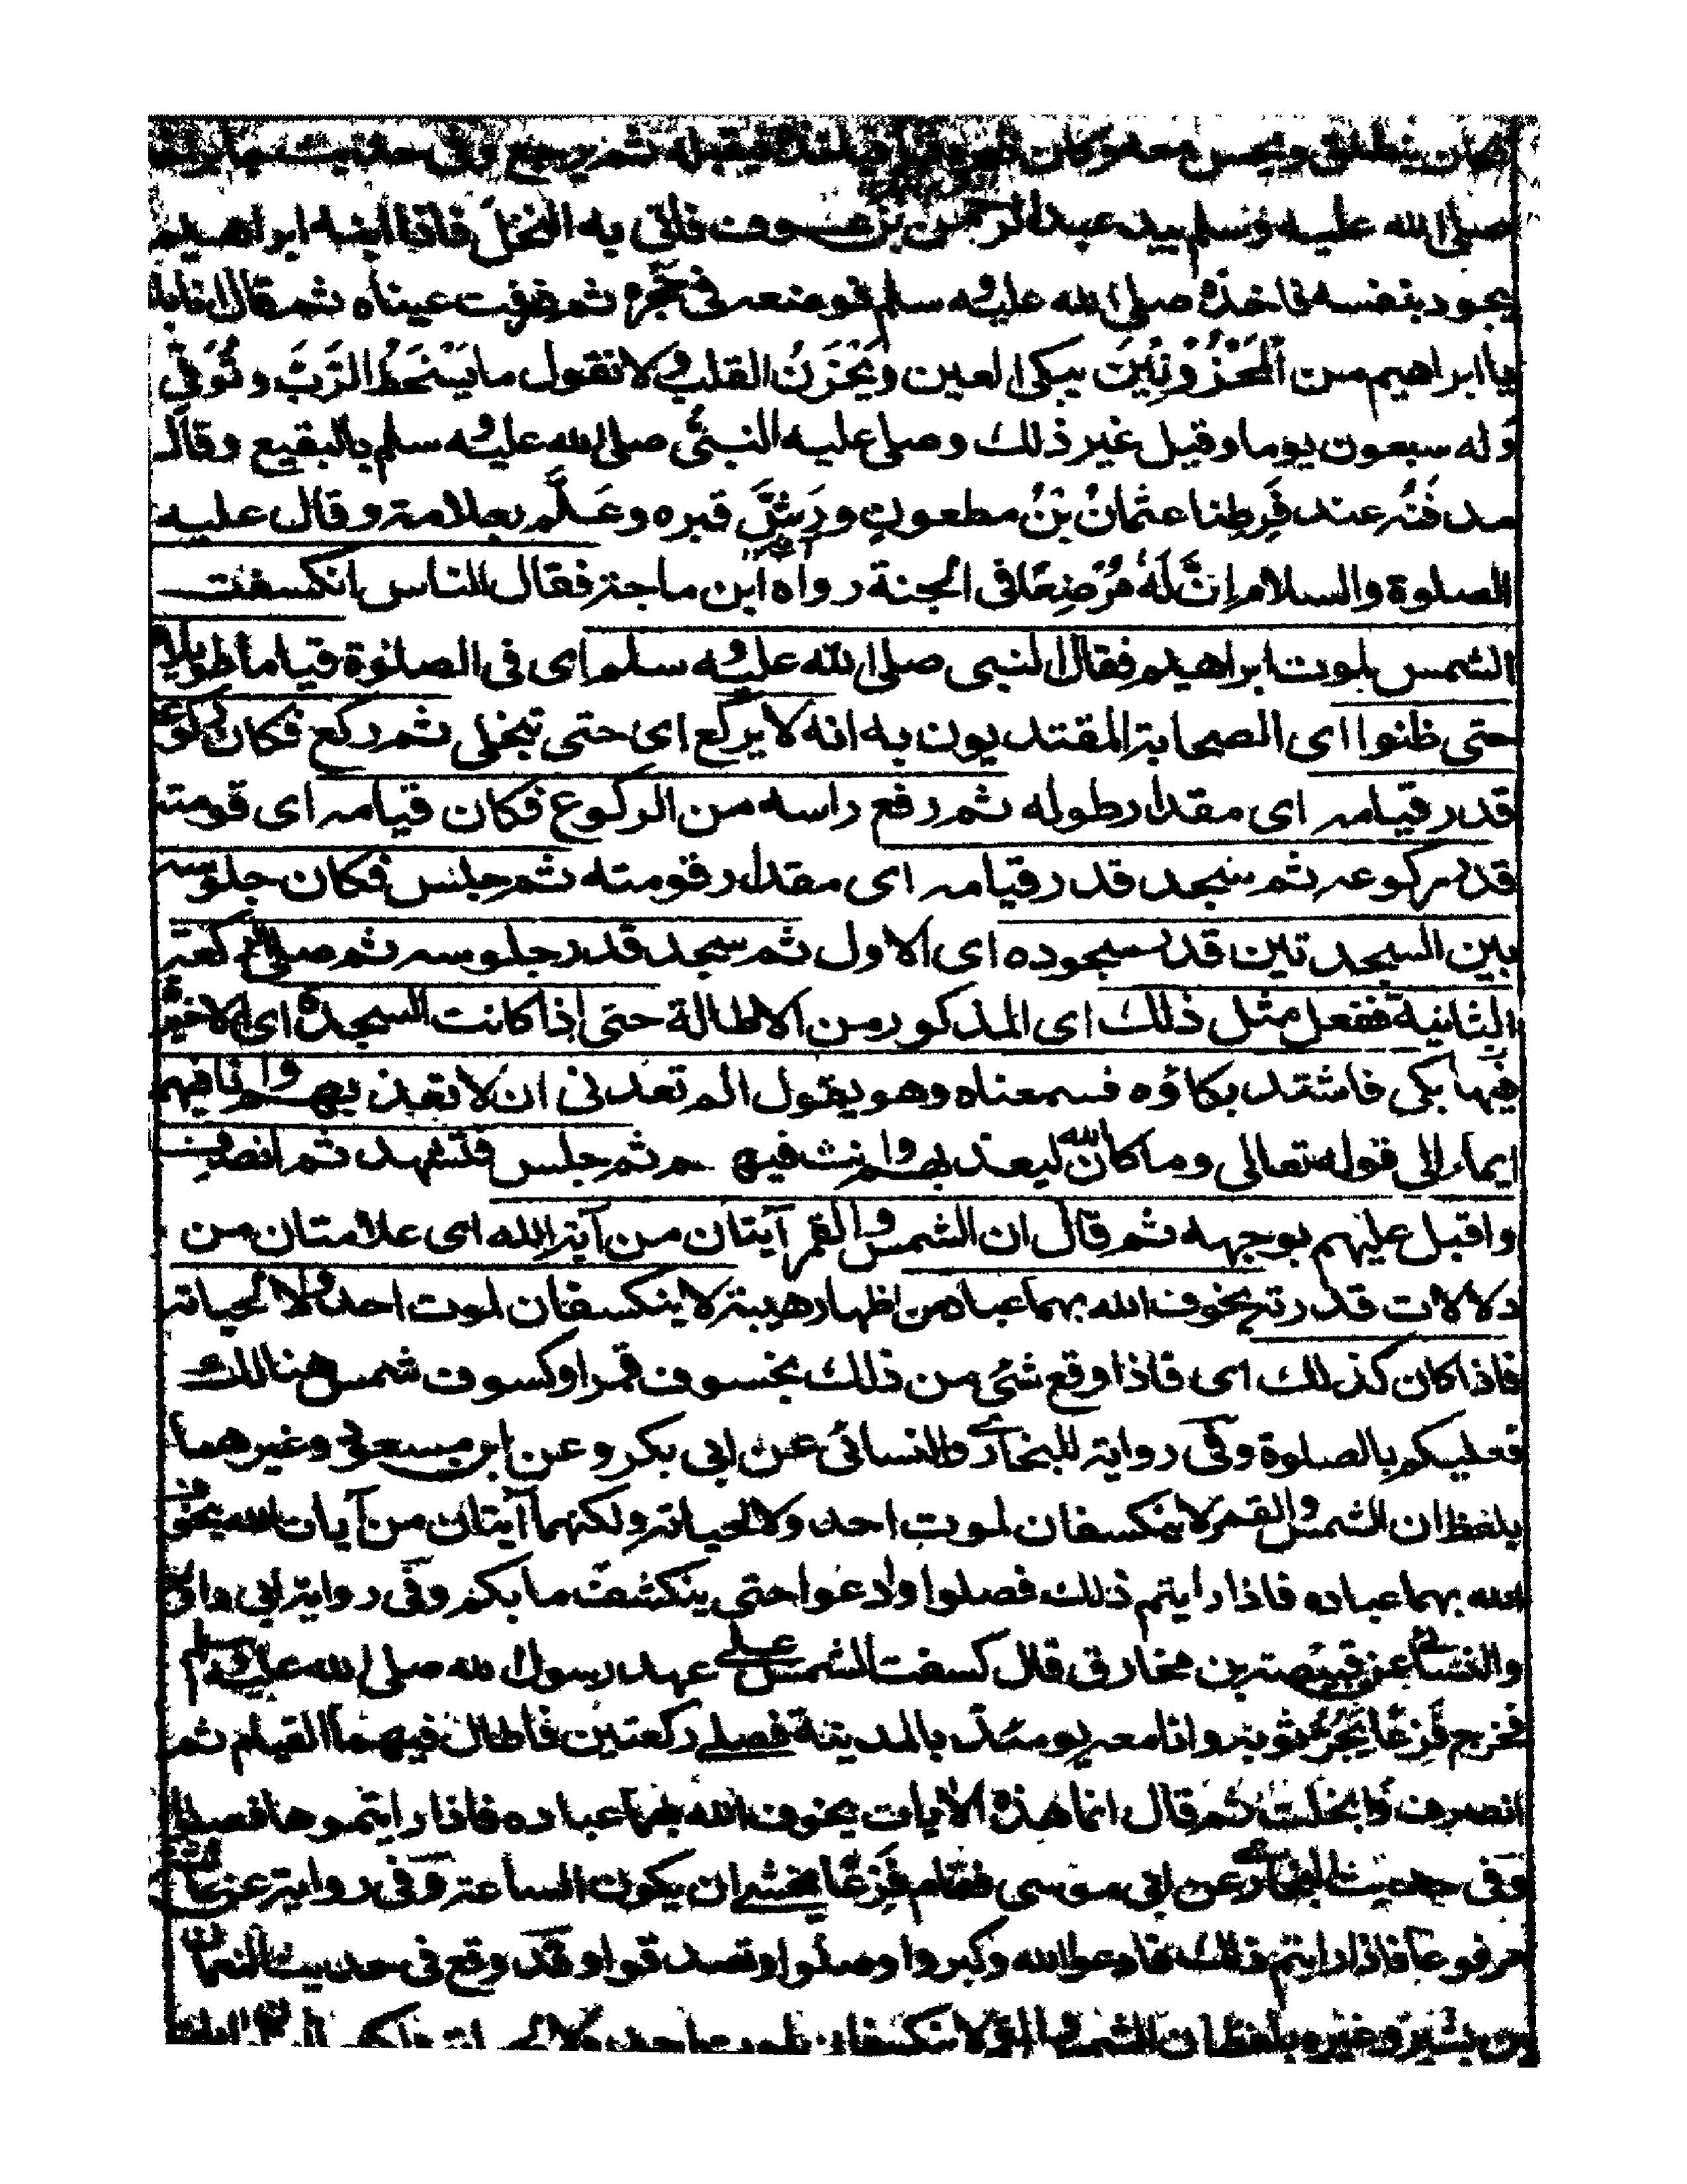 فكان ينطلق ونحن معه وكان فيقبله ثم يرجع وفى حديث
صلى الله عليه وسلم بيد عبدالرحمن بن عوف فاتى به النخل فاذا ابنه ابراهيم
يجود بنفسه فاخذه صلى الله عليه وسلم فوضعه فى حجره ثم ذرفت عيناه ثم قال انا بك
يا ابراهيم من المَحْزُوْنِيْنَ يبكى العين ويَحْزَنُ القلب ولا نقول ما يَسْخَطُ الرَّبَّ وتُوُفِّى
وله سبعون يوما وقيل غير ذلك وصلى عليه النبىُّ صلى الله عليه وسلم بالبقيع وقال
مدفَنُه عند فَرطِنا عثمانُ بْنُ مطعونٍ ورَشَّ قبره وعَلَّم بعلامة وقال عليه
الصلوة والسلام اِنَّ لَهُ مُرْضِعًا فى الجنة رواه ابن ماجة فقال الناس انكسفت
الشمس لموت ابراهيم فقال النبى صلى الله عليه وسلم اى فى الصلوٰة قياما طويلا
حتى ظنوا اى الصحابة المقتديون به انه لا يركع اى حتى تبخلى ثم ركع فكان ركوعه
قدر قيامه اى مقدار طوله ثم رفع راسه من الركوع فكان قيامه اى قومته
قدر ركوعه ثم سجد قدر قيامه اى مقدار قومته ثم جلس فكان جلوسه
بين السجدتين قدر سجوده اى الاول ثم سجد قدر جلوسه ثم صلى الركعة
الثانية ففعل مثل ذلك اى المذكور من الاطالة حتى اذا كانت السجدة اى الاخيرة
فيها بكى فاشتد بكاؤه فسمعناه وهو يقول الم تعدنى ان لا تعذبهم وانا فيهم
ايماء الى قوله تعالى وما كان الله ليعذبهم وانت فيهم ثم جلس فتشهد ثم انصرف
واقبل عليهم بوجهه ثم قال ان الشمس والقمر آيتان من آية الله اى علامتان من
دلالات قدرته يخوف الله بهما عباده من اظهار هيبة لا ينكسفان لموت احد ولا لحياته
فاذا كان كذلك اى فاذا وقع شئ من ذلك بخسوف قمر او كسوف شمس هنالك
فعليكم بالصلوة وفى رواية للبخارى والنسائى عن ابى بكر وعن ابن مسعود وغيرهما
بلفظ ان الشمس والقمر لا ينكسفان لموت احد ولا لحياته ولكنهما آيتان من آيات الله يخوف
الله بهما عباده فاذا رايتم ذلك فصلوا وادعوا حتى ينكشف ما بكم وفى رواية ابى داود
والنسائى عن قبيصة بن مخارق قال كسفت الشمس على عهد رسول الله صلى الله عليه وسلم
فخرج فَزِعًا يَجُرُّ ثوبه وانا معه يومئذ بالمدينة فصلى ركعتين فاطال فيهما القيام ثم
انصرف وانجلت ثم قال انما هذه الايات يخوف الله بها عباده فاذا رايتموها فصلوا
وفى حديث البخارى عن ابى موسى فقام فَزِعًا يخشى ان يكون الساعة وفى رواية عن عائشة
مرفوعا فاذا رايتم ذلك فادعوا الله وكبروا وصلوا وتصدقوا وقد وقع فى حديث النعمان
بن بشير وغيره بلفظ ان الشمس والقمر لا ينكسفان لموت احد ولا لحياته